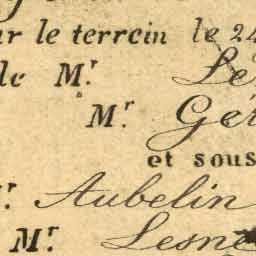 ur le terrein le 24
de Mr. Le
Mr. Gér
et sous
r. Aubelin
Mr. Lesne